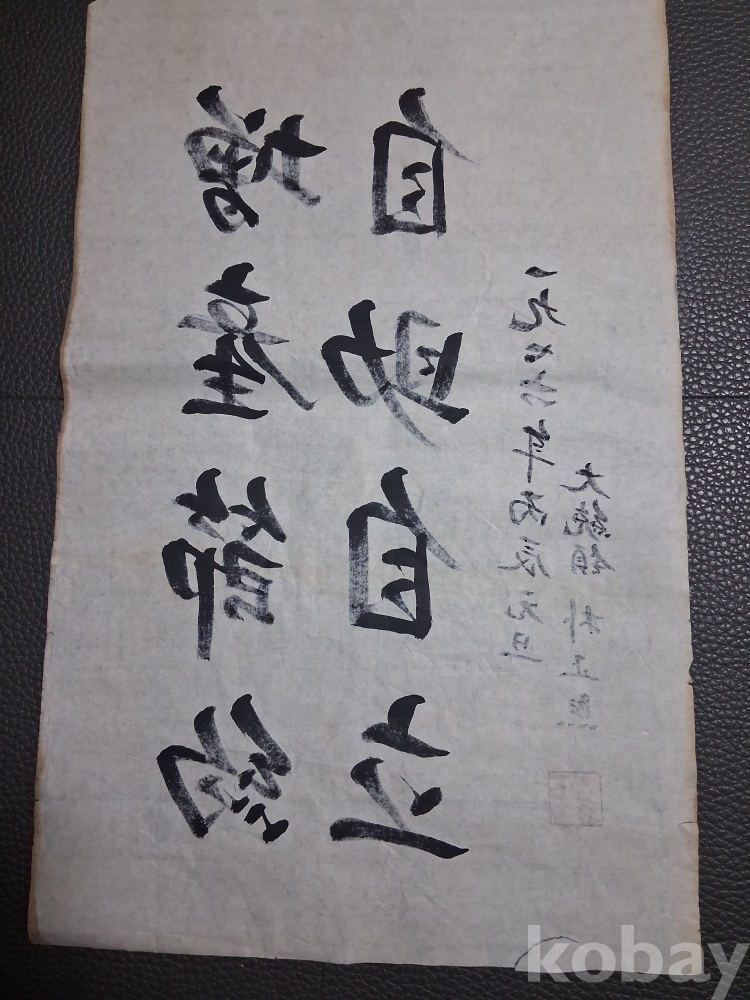 增産節約
自助自立
一九七六年丙辰元旦
大統領 朴正熙
kobay